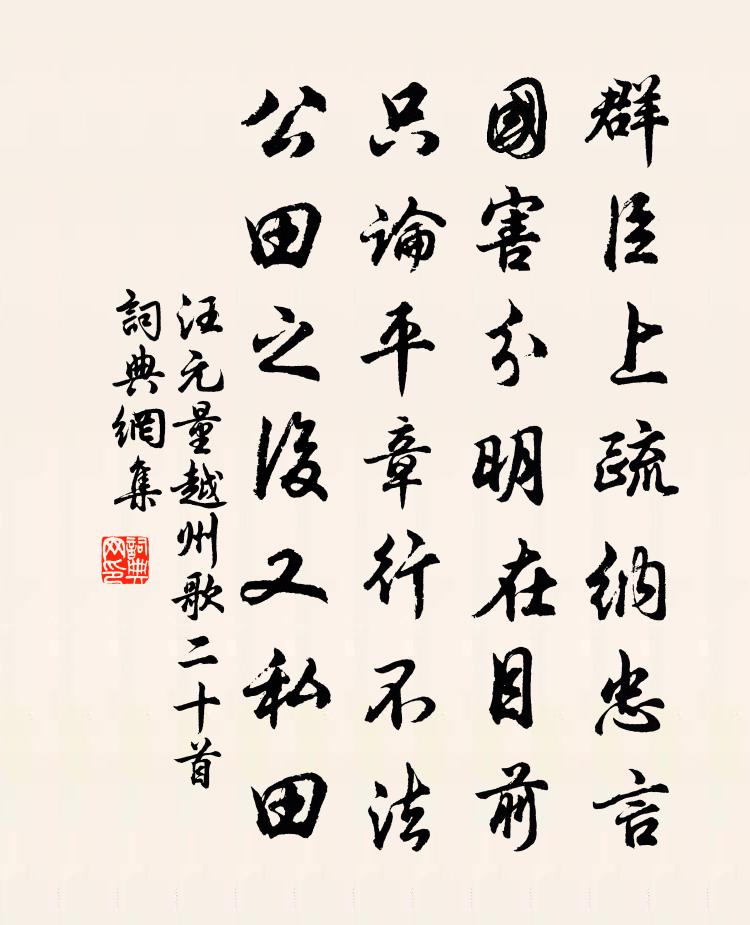 群臣上疏納忠言
國害分明在目前
只論平章行不法
公田之後又私田
汪元量越州歌二十首
詞典網集
詞典
网印